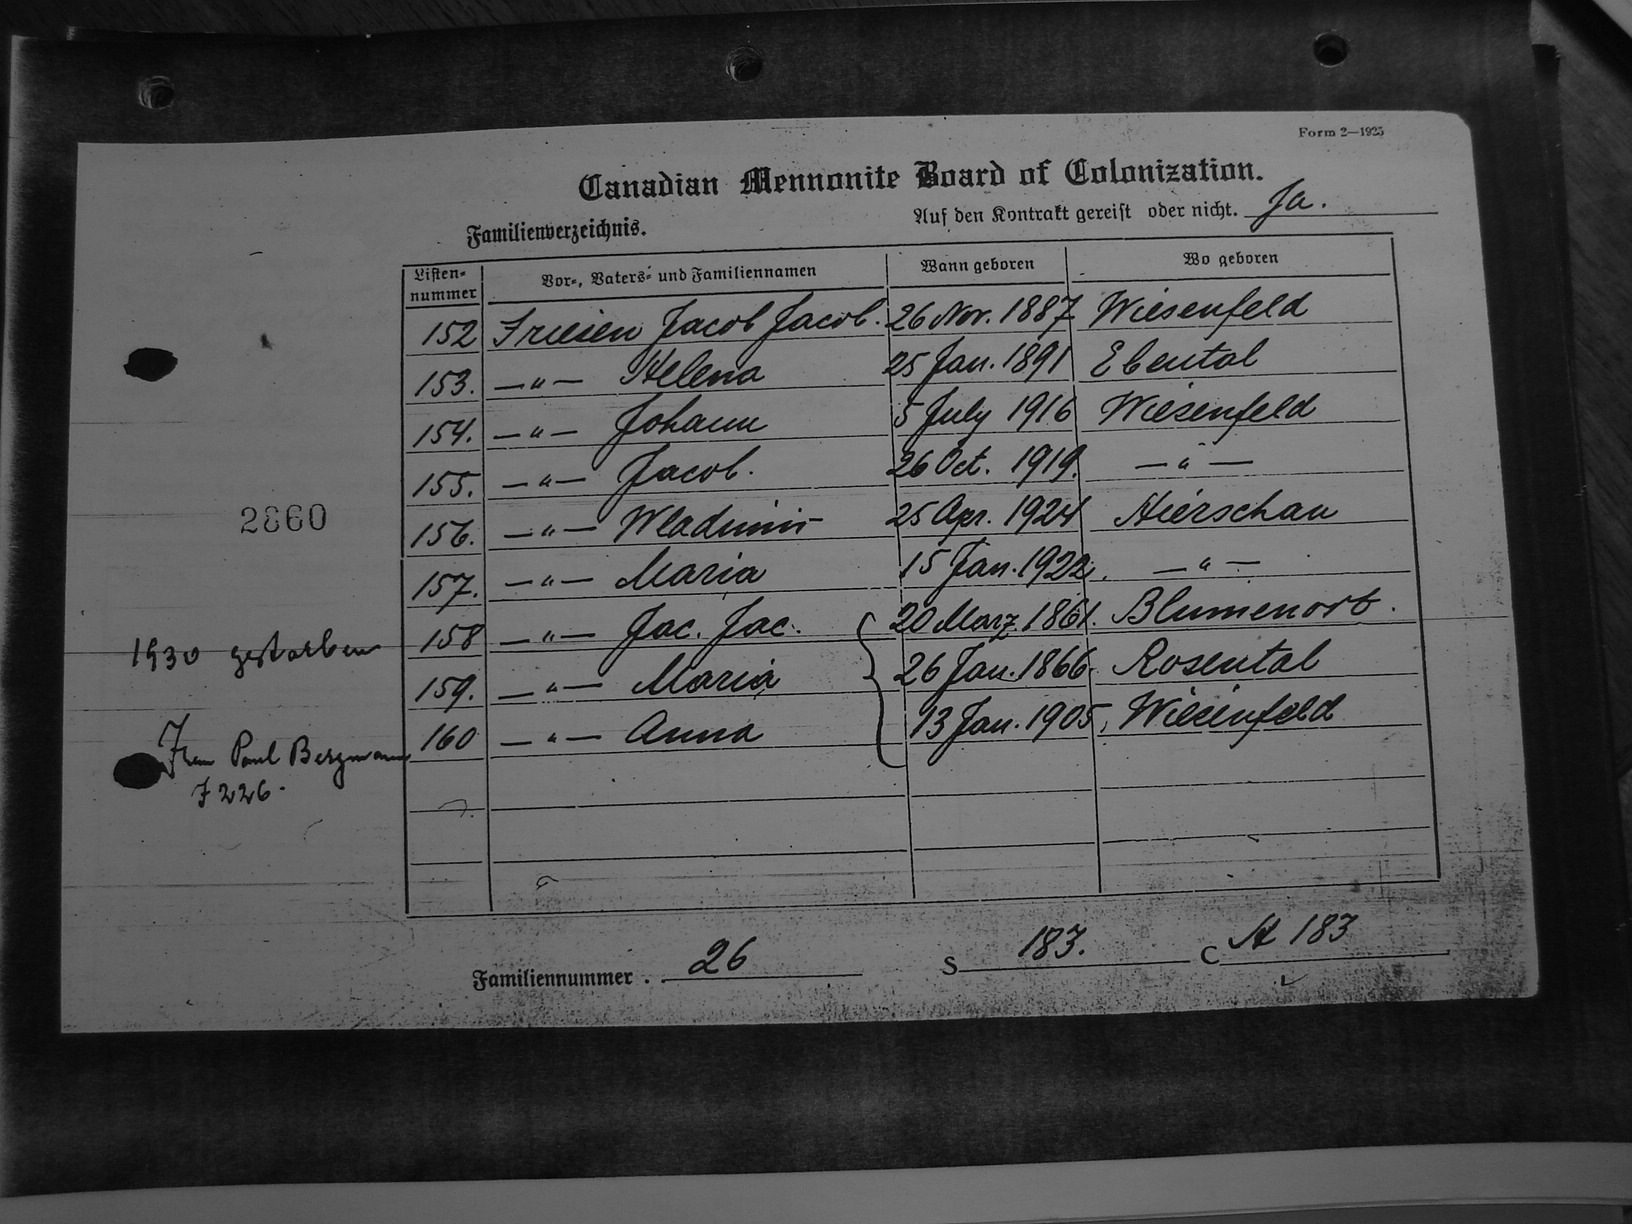 Form 2—1925
Canadian Mennonite Board of Colonization.
Familienverzeichnis.
Auf den Kontrakt gereist oder nicht. Ja.
Listen-nummer Vor-, Vaters- und Familiennamen Wann geboren Wo geboren
152 Friesen Jacob Jacob. 26 Nov. 1887 Wiesenfeld
153. —"— Helena 25 Jan. 1891 Ebental
154. —"— Johann 5 July 1916 Wiesenfeld
155. —"— Jacob. 26 Oct. 1919. —"—
2860
156. —"— Wladimir 25 Apr. 1924 Hierschau
157. —"— Maria 15 Jan. 1922. —"—
1930 gestorben
158 —"— Jac. Jac. 20 Marz 1861. Blumenort.
159. —"— Maria 26 Jan. 1866. Rosental
160 —"— Anna 13 Jan. 1905, Wiesenfeld
Frau Paul Bergmann
F 226.
Familiennummer. 26 S 183. C A 183